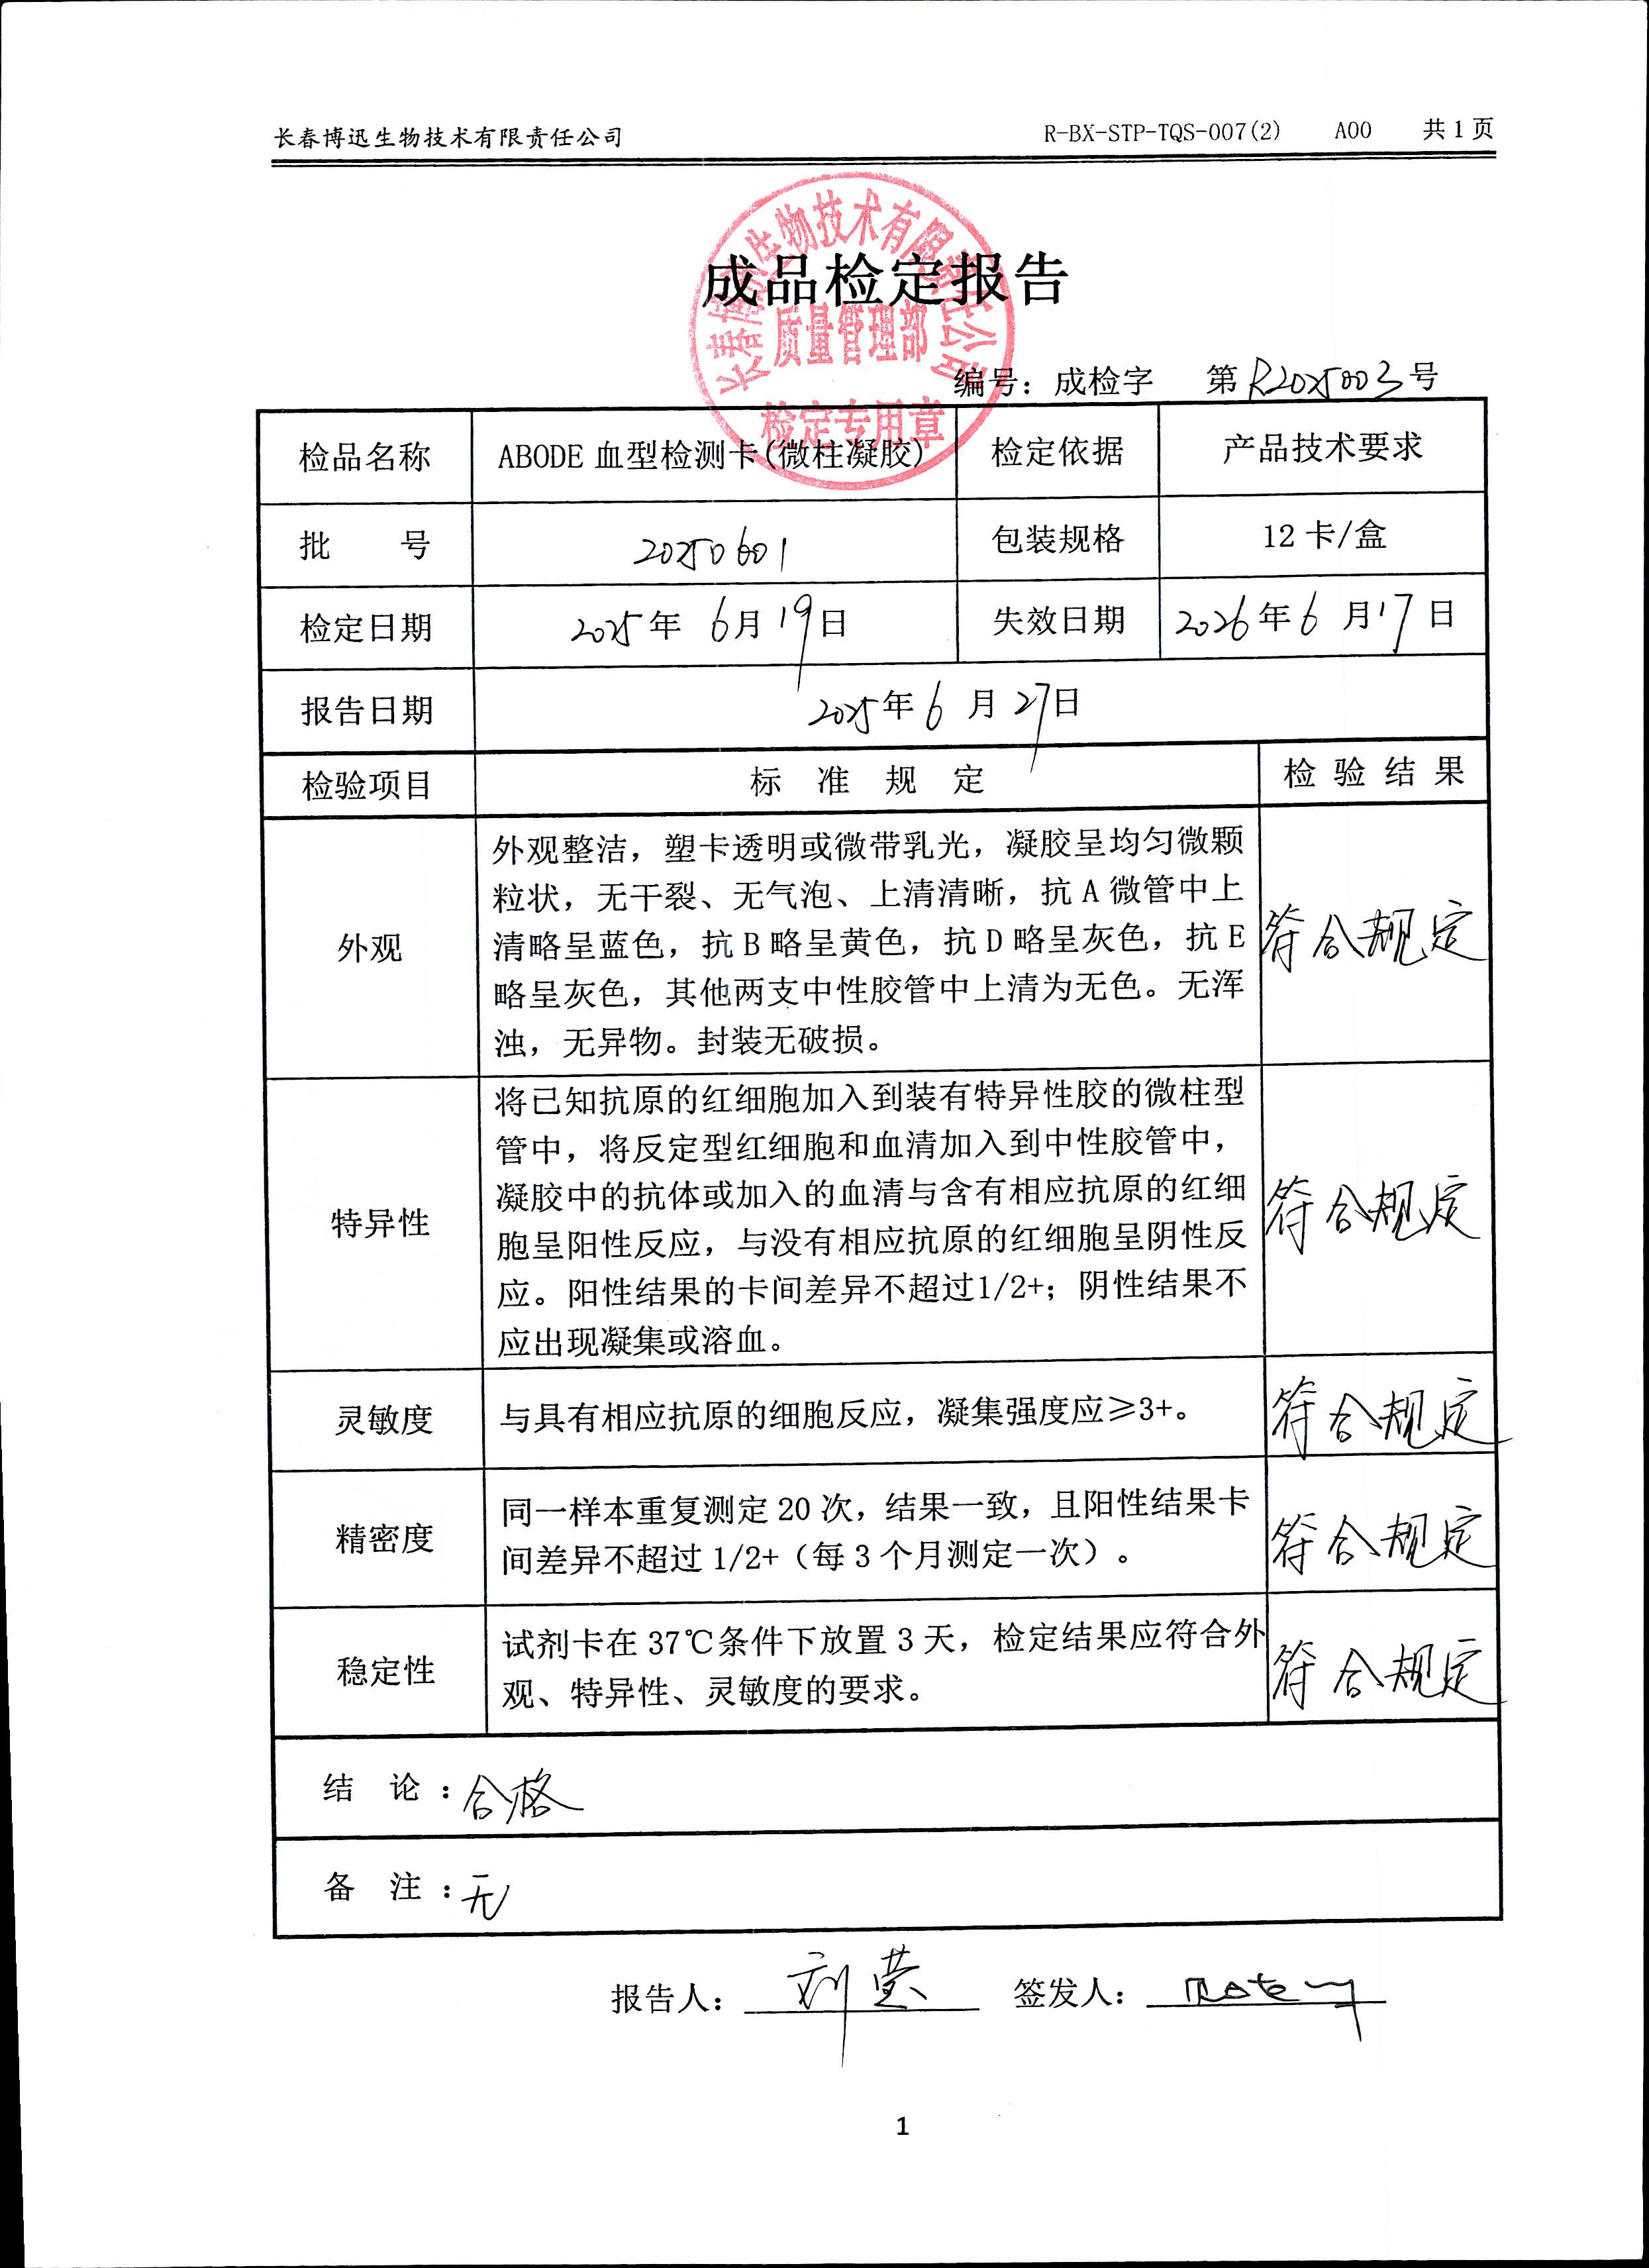 长春博迅生物技术有限责任公司 R-BX-STP-TQS-007(2) A00 共1页
长春博迅生物技术有限责任公司
成品检定报告
质量管理部
检定专用章
编号：成检字 第R2025003号
检品名称 ABODE 血型检测卡(微柱凝胶) 检定依据 产品技术要求
批 号 20250601 包装规格 12卡/盒
检定日期 2025年 6月19日 失效日期 2026年6月17日
报告日期 2025年6月27日
检验项目 标 准 规 定 检 验 结 果
外观整洁，塑卡透明或微带乳光，凝胶呈均匀微颗
粒状，无干裂、无气泡、上清清晰，抗A微管中上
外观 清略呈蓝色，抗B略呈黄色，抗D略呈灰色，抗E 符合规定
略呈灰色，其他两支中性胶管中上清为无色。无浑
浊，无异物。封装无破损。
将已知抗原的红细胞加入到装有特异性胶的微柱型
管中，将反定型红细胞和血清加入到中性胶管中，
凝胶中的抗体或加入的血清与含有相应抗原的红细
特异性 胞呈阳性反应，与没有相应抗原的红细胞呈阴性反 符合规定
应。阳性结果的卡间差异不超过1/2+；阴性结果不
应出现凝集或溶血。
灵敏度 与具有相应抗原的细胞反应，凝集强度应≥3+。 符合规定
同一样本重复测定20次，结果一致，且阳性结果卡
精密度 间差异不超过1/2+（每3个月测定一次）。 符合规定
试剂卡在37℃条件下放置3天，检定结果应符合外
稳定性 观、特异性、灵敏度的要求。 符合规定
结 论：合格
备 注：无
报告人： 刘莹 签发人：
1